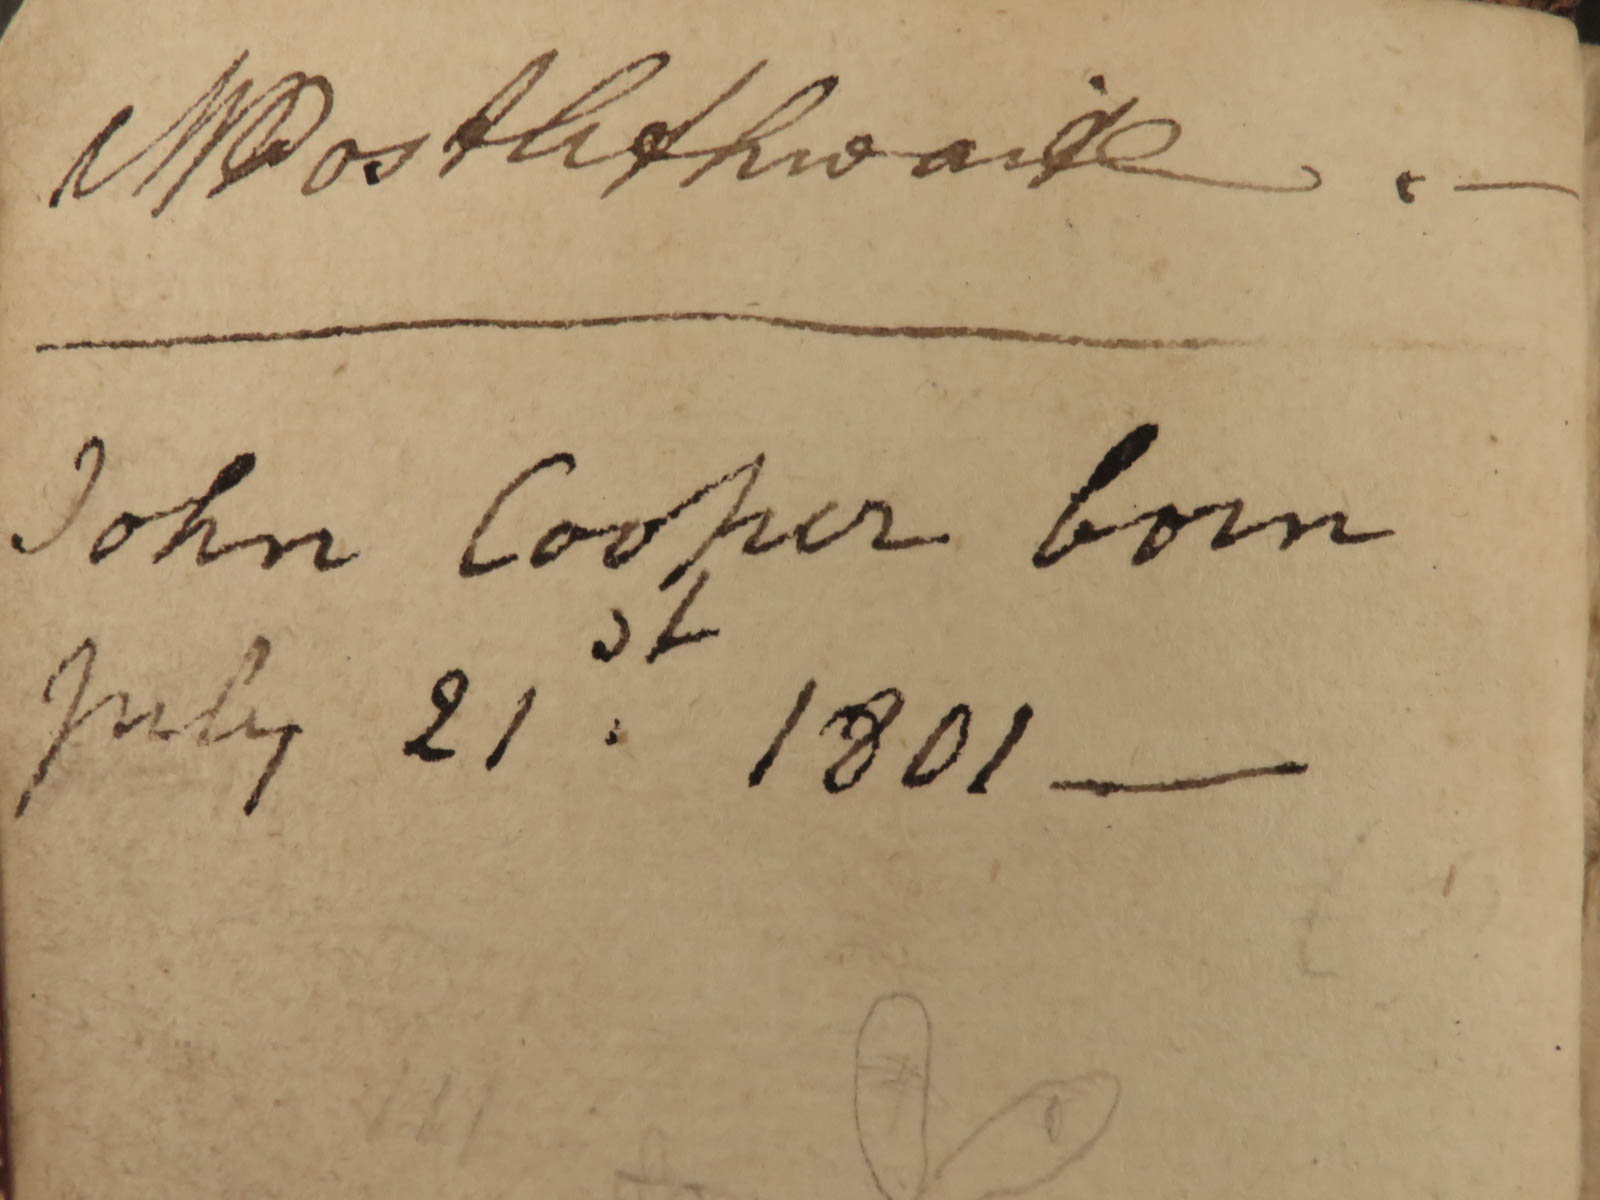 MPostlethwaite . —
John Cooper born
July 21st. 1801 —